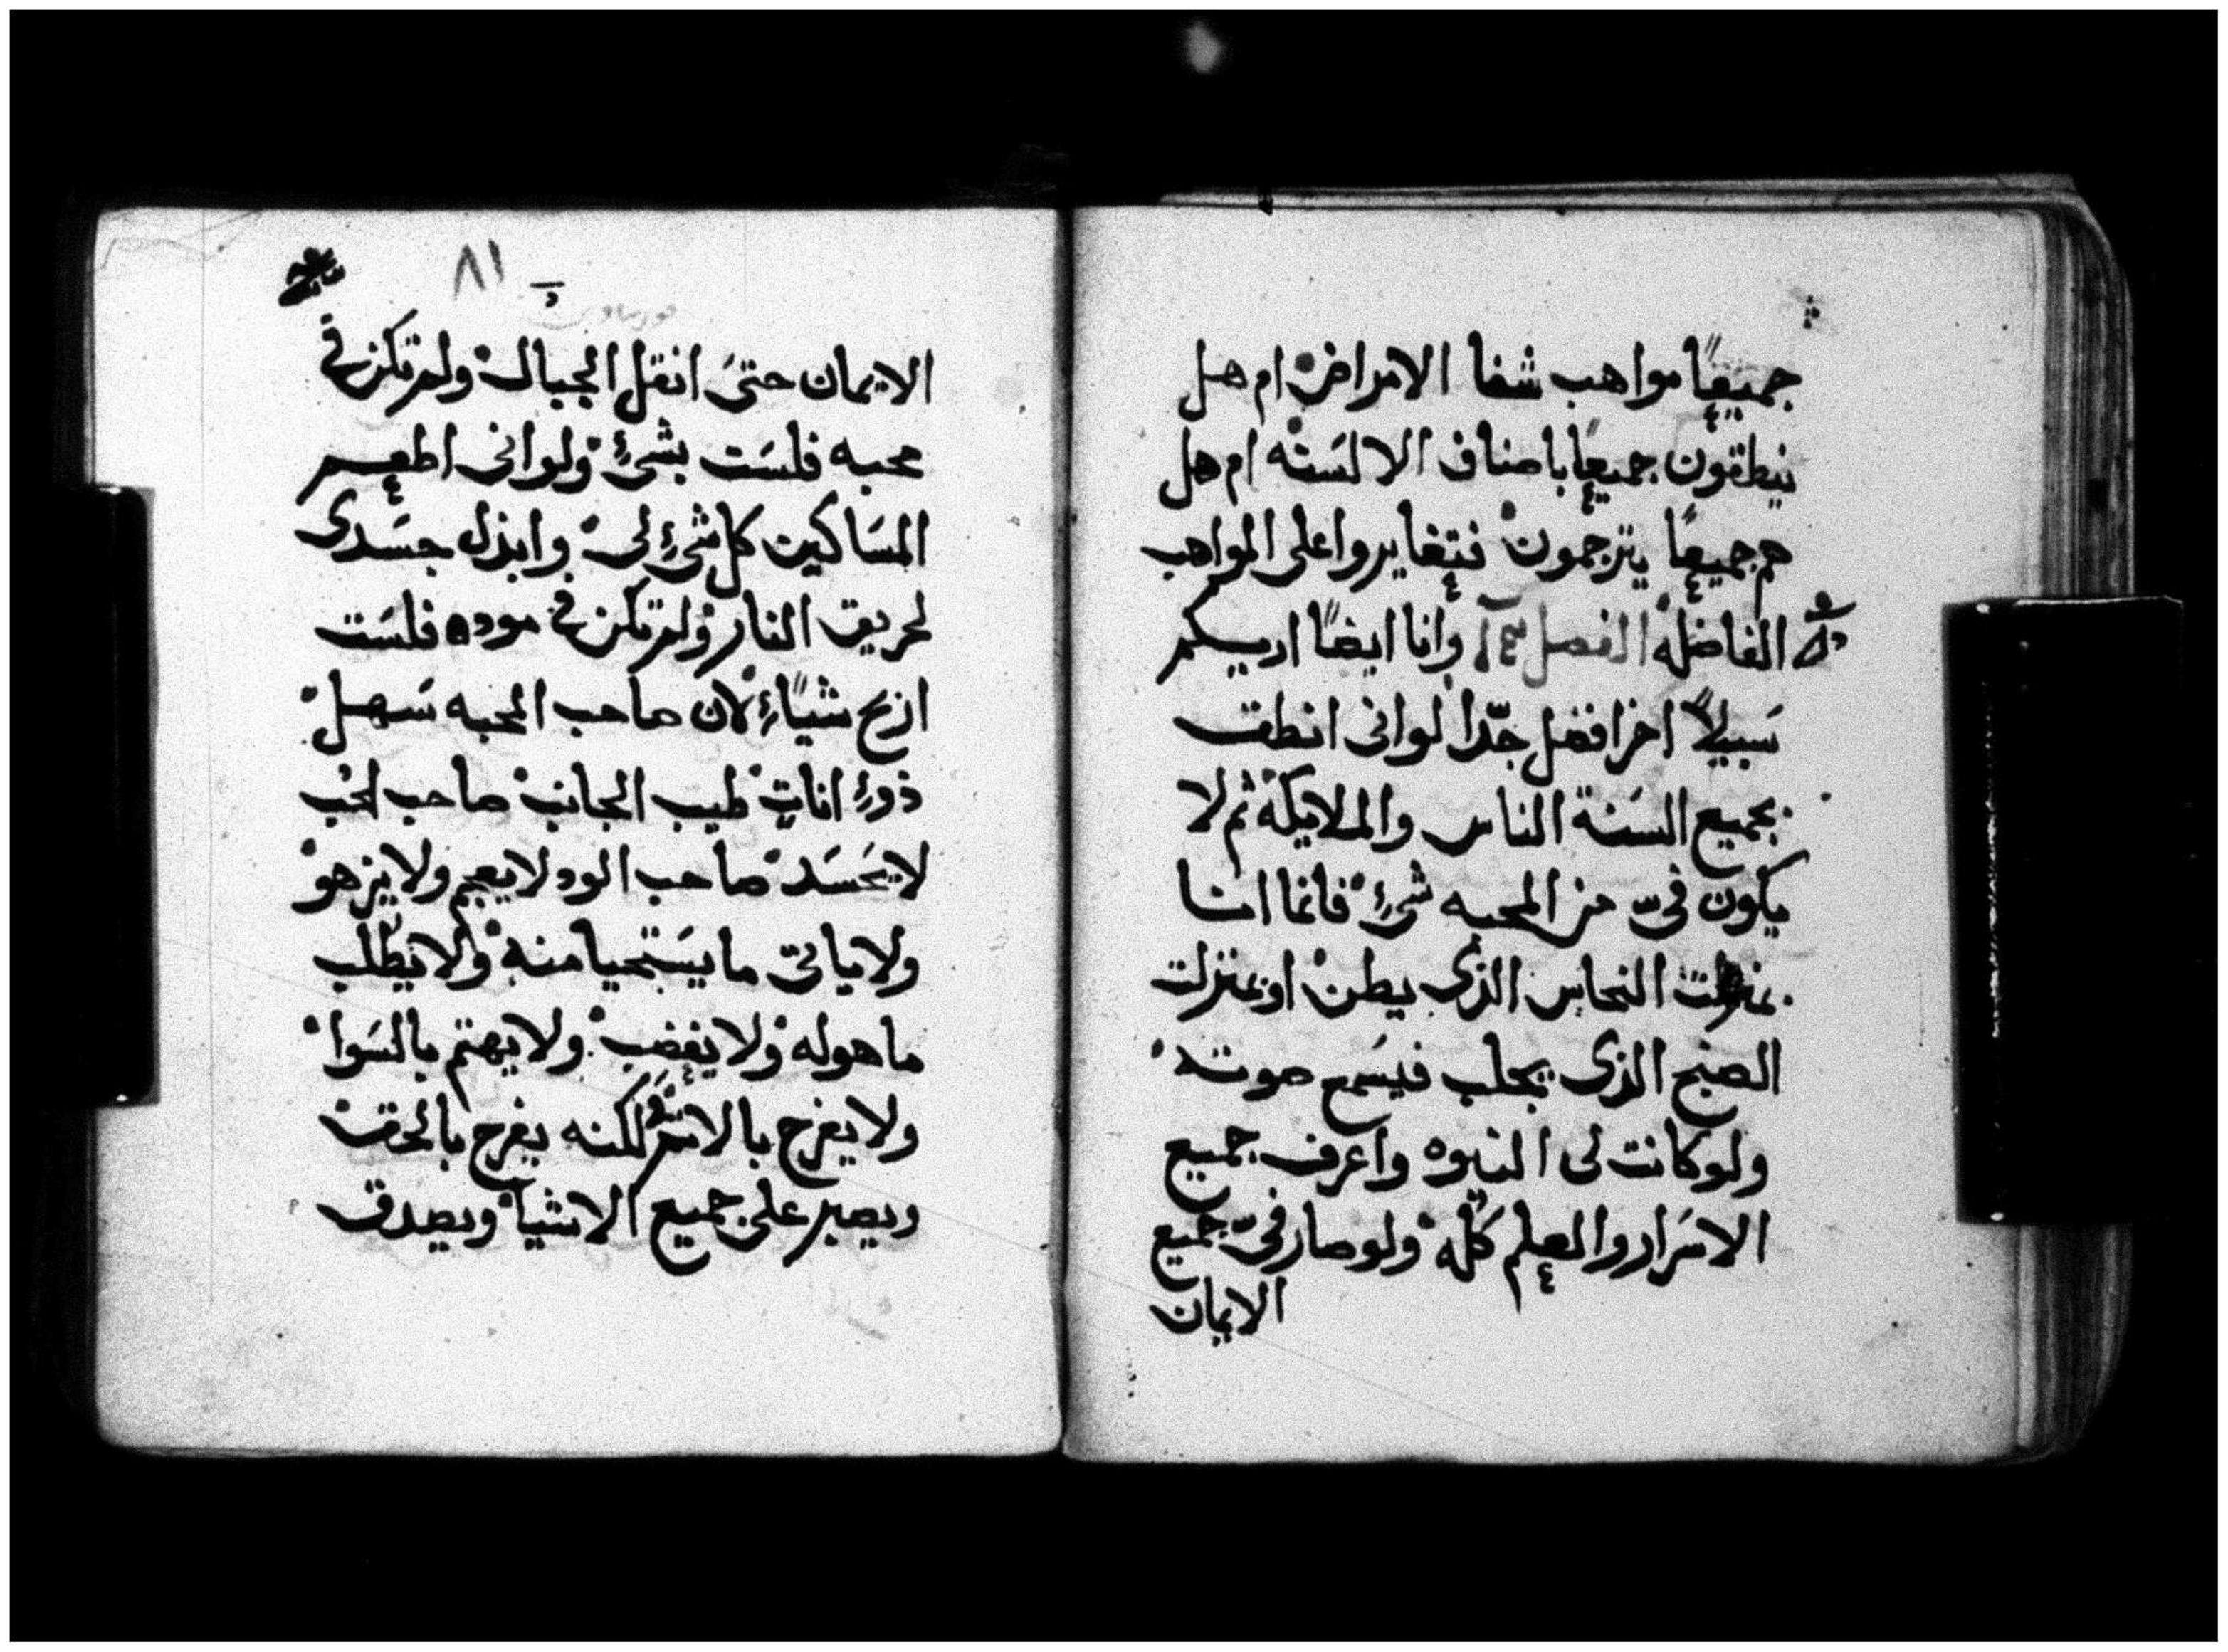 جميعًا مواهب شفا الامراض ام هل
ينطقون جميعًا باصناف الالسَنه ام هل
هم جميعًا يترجمون فتغايروا على المواهب
الفاضله الفصل وانا ايضًا اريكم
سَبيلاً اخر افضل جدّا لوانى انطقت
بجميع السَنة الناس والملايكة ثم لا
يكون فىّ من المحبه شئ فانما انا
بمنزلت النحاس الذى يطن او بمنزلت
الصنج الذى يجلب فيسَمع صوته
ولو كانت لى النبوه واعرف جميع
الاسَرار والعلم كُلّه ولو صار فىّ جميع
الايمان
٨١
الايمان حتىَ انقل الجبال ولم تكن فى
محبه فلسَت بشئ ولوانى اطعم
المسَاكين كل شئ لى وابذل جسَدى
لحريق النار ولم تكن فى موده فلسَت
اربح شيًاء لان صاحب المحبه سَهل
ذو اناتٍ طيب الجانب صاحب الحب
لا يحَسَد صاحب الود لا يعجم ولا يزهو
ولا ياتى ما يسَتحيا منه ولا يطلب
ما هوله ولا يغضب ولا يهتم بالسَوا
ولا يفرح بالاثم لكنه يفرح بالحق
ويصبر على جميع الاشيا ويصدق